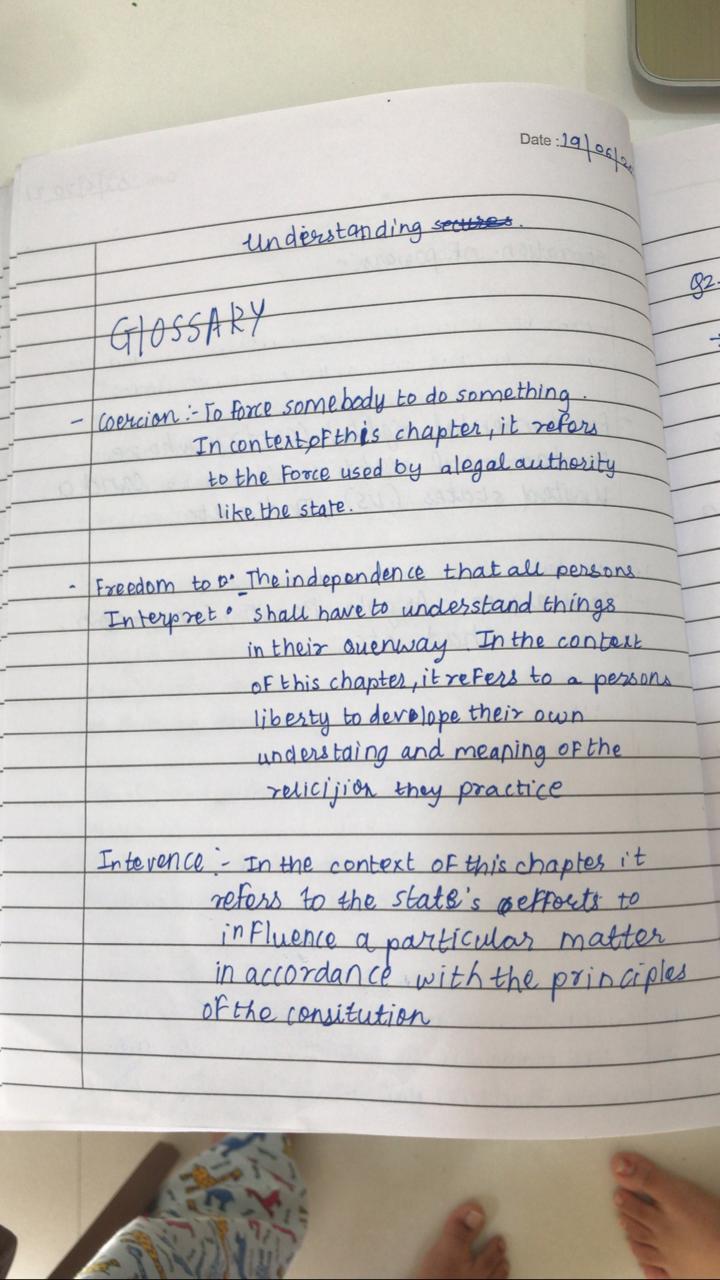 Date : 19/06/2
Understanding secures.
GlOSSARY
- Coercion :- To force somebody to do something.
In context of this chapter, it refers
to the Force used by a legal authority
like the state.
- Freedom to :- The independence that all persons
Interpret shall have to understand things
in their ouenway In the context
of this chapter, it refers to a persons
liberty to develope their own
understaing and meaning of the
relicijion they practice
Intevence :- In the context of this chapter it
refers to the state's efforts to
influence a particular matter
in accordance with the principles
of the consitution
Q2.